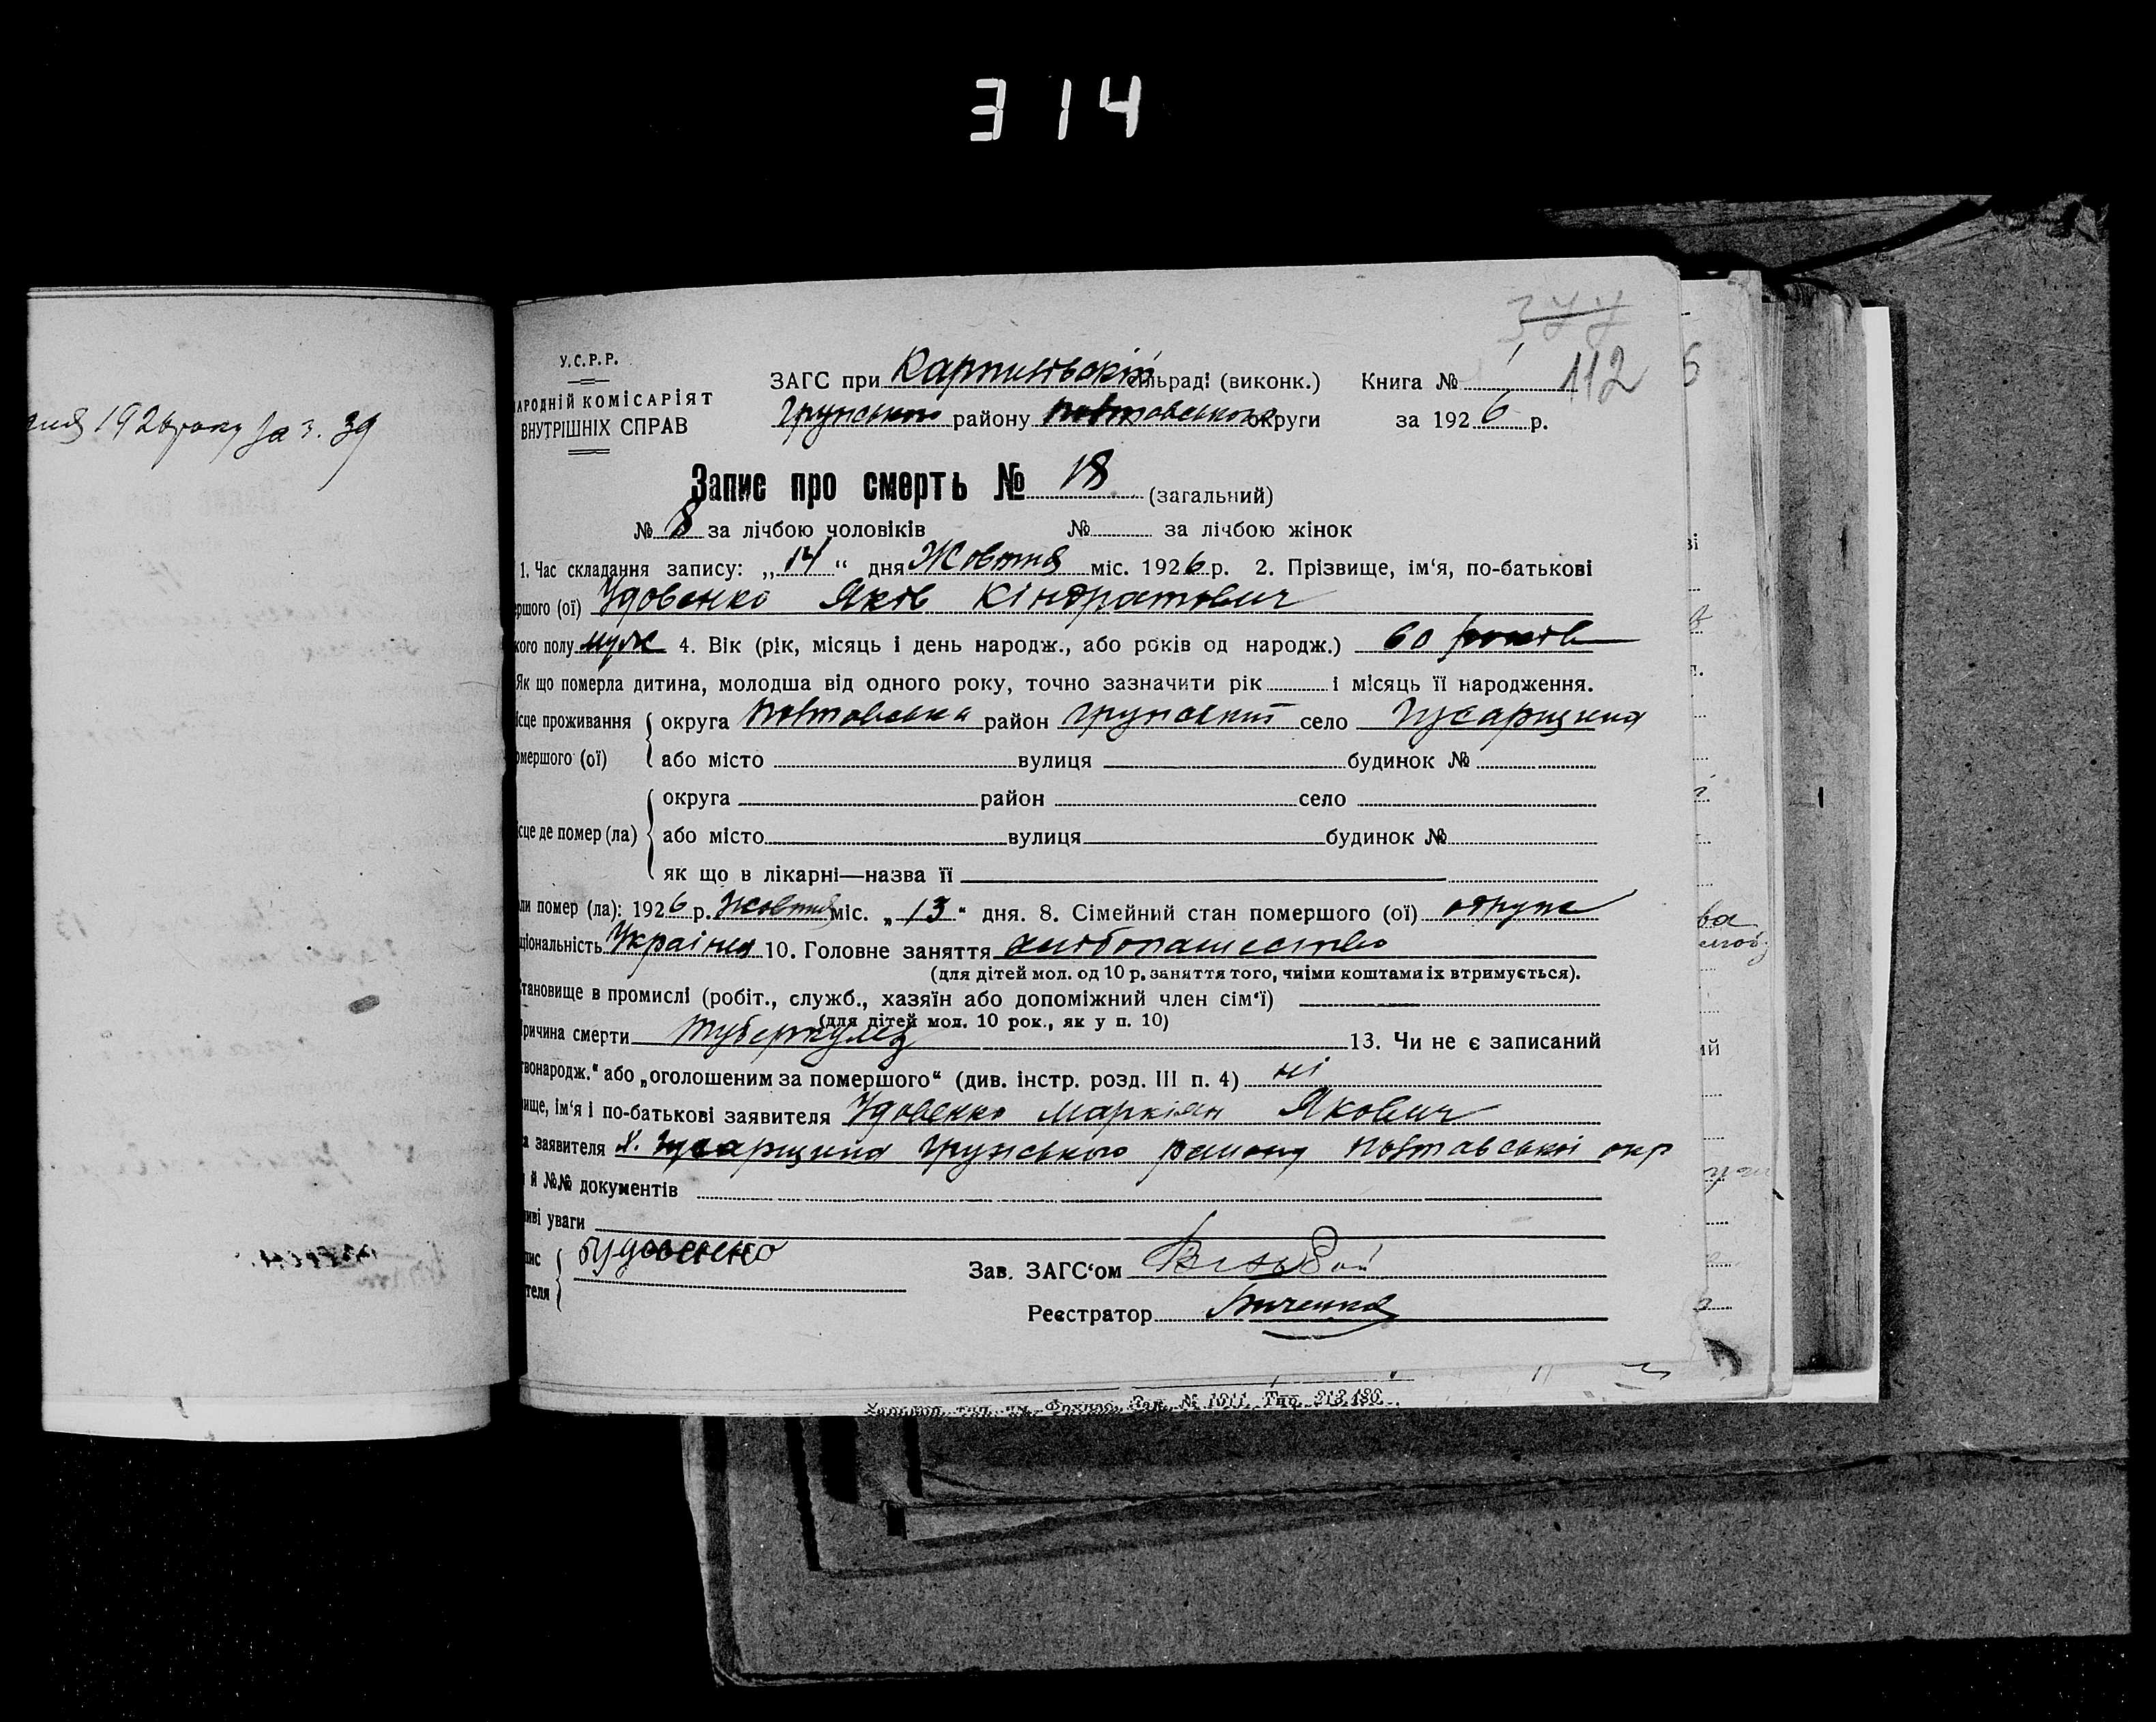 314
377
112
У.С.Р.Р.
НАРОДНІЙ КОМІСАРІЯТ
ВНУТРІШНІХ СПРАВ
ЗАГС при сільраді (виконк.) Книга №
Грунського району Полтавської округи за 1926 р.
року за з. 39
Запис про смерть № 18 (загальний)
№ 8 за лічбою чоловіків № за лічбою жінок
1. Час складання запису: „14“ дня Жовтня міс. 1926 р. 2. Прізвище, ім‘я, по-батькові
ршого (ої) Удовенко Яків Кіндратович
кого полу муж 4. Вік (рік, місяць і день народж., або років од народж.) 60 років
Як що померла дитина, молодша від одного року, точно зазначити рік і місяць її народження.
ісце проживання округа Полтавська район Грунський село Гусарщина
омершого (ої) або місто вулиця будинок №
округа район село
ісце де помер (ла) або місто вулиця будинок №
як що в лікарні—назва її
ли помер (ла): 1926 р. Жовтня міс. „13“ дня. 8. Сімейний стан помершого (ої)
ціональність 10. Головне заняття хліборобство
(для дітей мол. од 10 р. заняття того, чиїми коштами їх втримується).
тановище в промислі (робіт., служб., хазяїн або допоміжний член сім‘ї)
(для дітей мол. 10 рок., як у п. 10)
ричина смерти туберкульоз 13. Чи не є записаний
твонародж.“ або „оголошеним за помершого“ (див. інстр. розд. III п. 4) ні
ище, ім‘я і по-батькові заявителя Удовенко Маркіян Якович
а заявителя х. Гусарщина Грунського району Полтавської окр
й №№ документів
иві уваги
ис
теля
Зав. ЗАГС‘ом
Реєстратор
Зак. № 1011. Тир. 213.480.